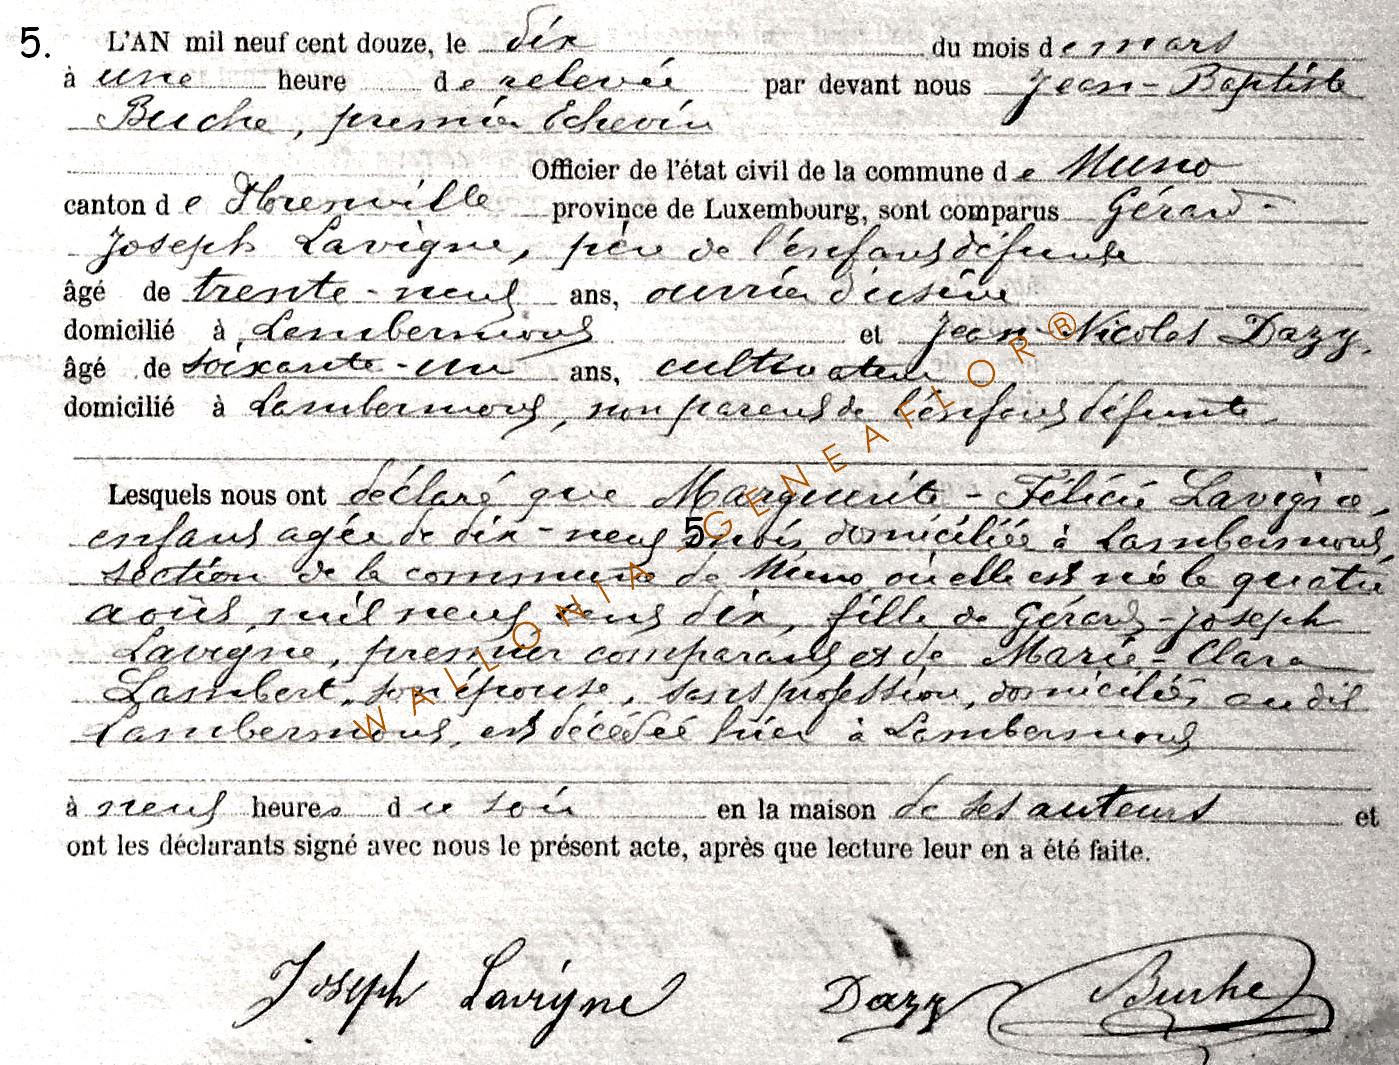 5. L'AN mil neuf cent douze, le dix du mois de mars
à une heure de relevée par devant nous Jean-Baptiste
Buche, premier Echevin
Officier de l'état civil de la commune de Muno
canton de Florenville province de Luxembourg, sont comparus Gérard-
Joseph Lavigne, père de l'enfant défunte
âgé de trente-neuf ans, ouvrier d'usine
domicilié à Lambermont et Jean-Nicolas Dazy,
âgé de soixante-un ans, cultivateur
domicilié à Lambermont, non parent de l'enfant défunte,
Lesquels nous ont déclaré que Marguerite-Félicie Lavigne,
enfant agée de dix-neuf 5 mois domiciliée à Lambermont,
section de la commune de Muno où elle est née le quatre
août mil neuf cent dix, fille de Gérard-Joseph
Lavigne, premier comparant et de Marie-Clara
Lambert, son épouse, sans profession, domiciliés au dit
Lambermont, est décédée hier à Lambermont
à neuf heures du soir en la maison de ses auteurs et
ont les déclarants signé avec nous le présent acte, après que lecture leur en a été faite.
Joseph Lavigne Dazy Buche
WALLONIA_GENEAFLOR®